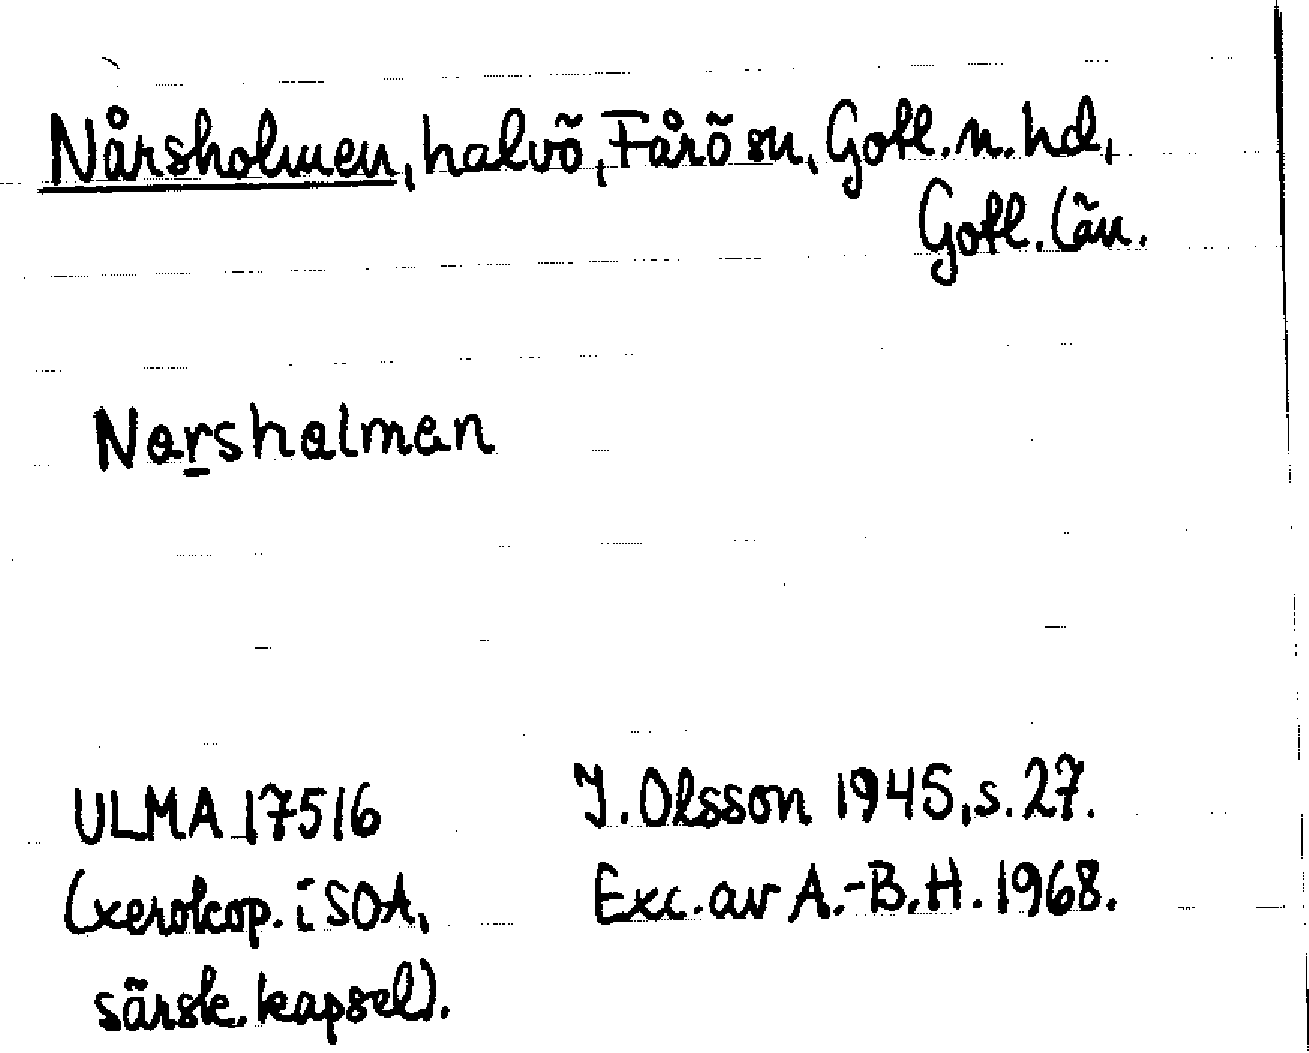 Nårsholmen, halvö, Fårö sn, Gotl. n. hd,
Gotl. län.
Norsholman
ULMA 17516
(xerokop. i SOA,
särsk. kapsel).
I. Olsson 1945, s. 27.
Exc. av A.-B. H. 1968.